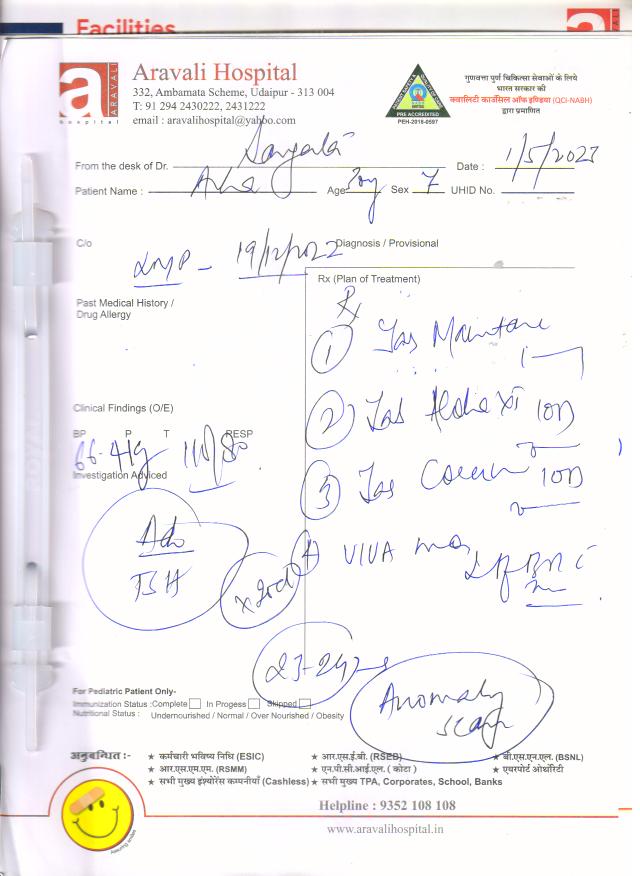 Facilities
Aravali Hospital
332, Ambamata Scheme, Udaipur - 313 004
T: 91 294 2430222, 2431222
email : aravalihospital@yahoo.com
a ARAVALI
hospital
PRE ACCREDITED
PEH-2018-0597
गुणवत्ता पुर्ण चिकित्सा सेवाओं के लिये
भारत सरकार की
क्वालिटी काउंसिल ऑफ इण्डिया (QCI-NABH)
द्वारा प्रमाणित
From the desk of Dr. Date : 1/5/2023
Patient Name : Age 30y Sex F UHID No.
C/o LMP - 19/12/2022 Diagnosis / Provisional
Rx (Plan of Treatment)
Past Medical History /
Drug Allergy
Rx
1 Tab Maintane
2 Tab
10D
3 Tab
10D
Clinical Findings (O/E)
BP P T RESP
110/80
Investigation Adviced
Adv
TSH
4 VIVA
Anomaly
scan
For Pediatric Patient Only-
Immunization Status :Complete In Progess Skipped
Nutritional Status : Undernourished / Normal / Over Nourished / Obesity
अनुबन्धित :- ★ कर्मचारी भविष्य निधि (ESIC) ★ आर.एस.ई.बी. (RSEB) ★ बी.एस.एन.एल. (BSNL)
★ आर.एस.एम.एम. (RSMM) ★ एन.पी.सी.आई.एल. ( कोटा ) ★ एयरपोर्ट ओथॉरिटी
★ सभी मुख्य इंश्योरेंस कम्पनीयाँ (Cashless) ★ सभी मुख्य TPA, Corporates, School, Banks
Helpline : 9352 108 108
www.aravalihospital.in